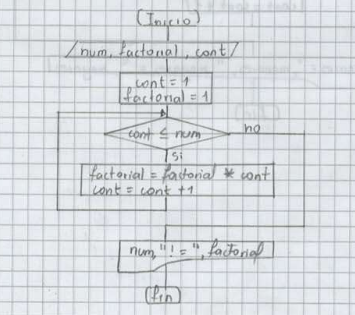 (Inicio)
/num, factorial, cont/
cont = 1
factorial = 1
cont ≤ num
no
si
factorial = factorial * cont
cont = cont + 1
num, "! = ", factorial
(fin)